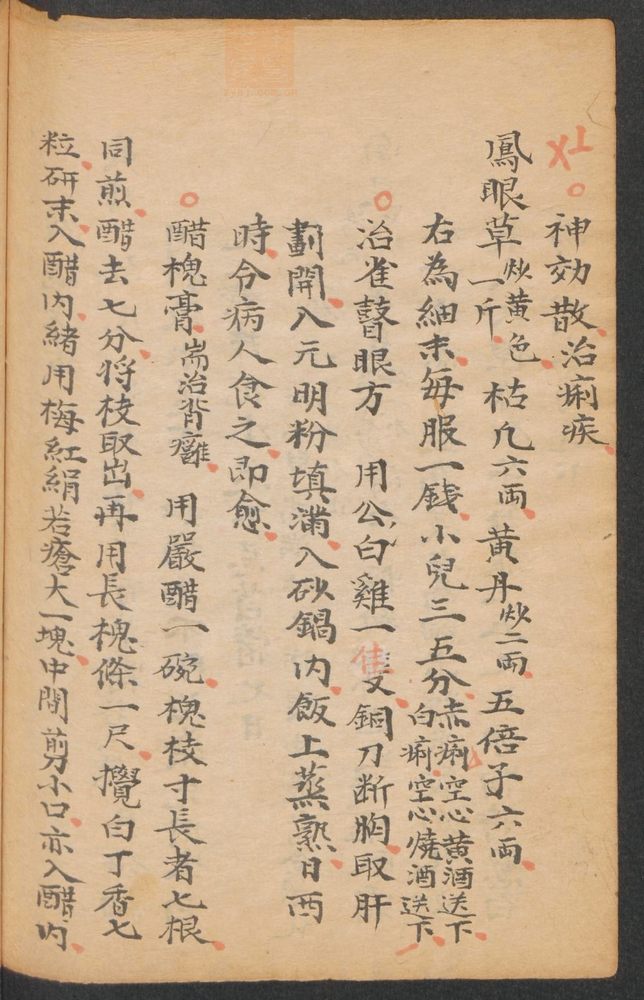 神効散治痢疾
鳳眼草一斤炒黄色 枯凢六両 黄丹炒二両 五倍子六両
右為細末每服一銭小兒三五分赤痢空心黄酒送下白痢空心燒酒送下
治雀瞽眼方 用公白雞一隻銅刀断胸取肝
劃開入元明粉填滿入砂鍋内飯上蒸熟日西
時令病人食之即愈
醋槐膏耑治背癰 用嚴醋一碗槐枝寸長者七根
同煎醋去七分将枝取出再用長槐條一尺攪白丁香七
粒研末入醋内緒用梅紅絹若瘡大一塊中間剪小口亦入醋内